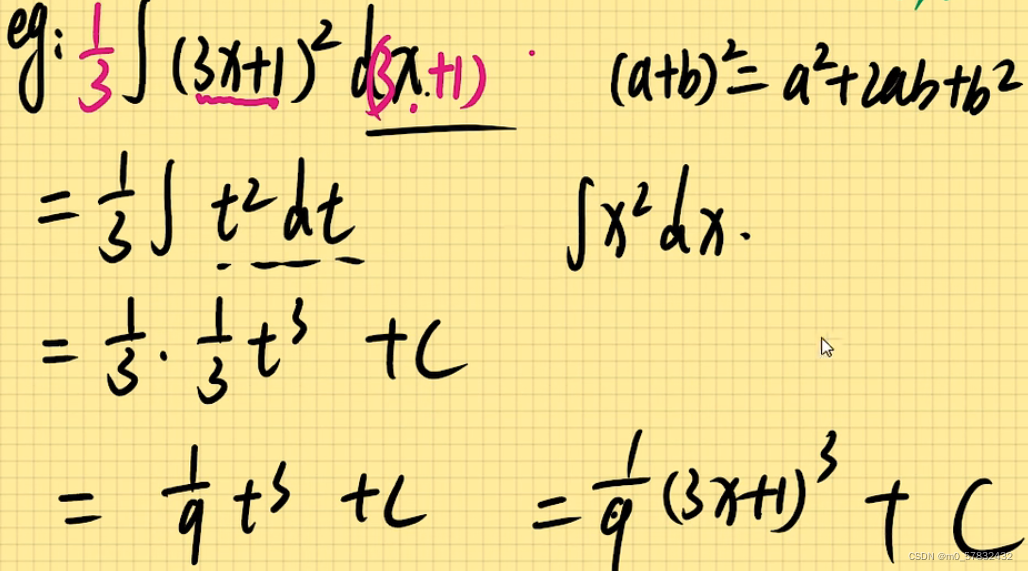 eg: 1/3 ∫ (3x+1)² d(3x+1) (a+b)² = a²+2ab+b²
= 1/3 ∫ t² dt ∫x² dx.
= 1/3 · 1/3 t³ +C
= 1/9 t³ +C = 1/9 (3x+1)³ + C
CSDN @m0_57832432